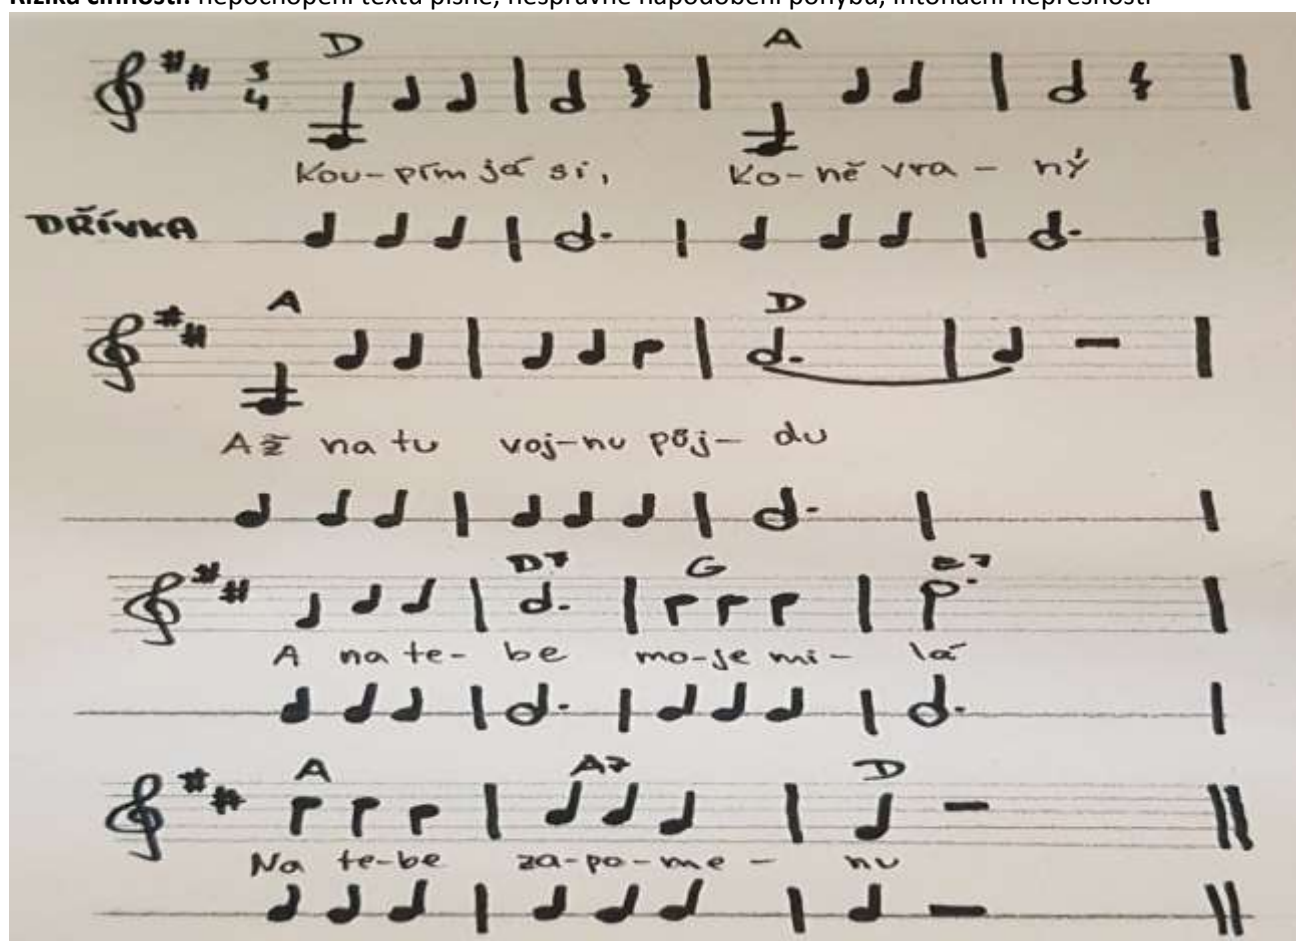 Rizika činnosti: nepochopení textu písně, nesprávné napodobení pohybu, intonační nepřesnosti
D A
3
4
Kou-pím já si, Ko-ně vra - ný
DŘÍVKA
A D
Až na tu voj-nu půj- du
D7 G E7
A na te- be mo-je mi- lá
A A7 D
Na te-be za-po-me - nu